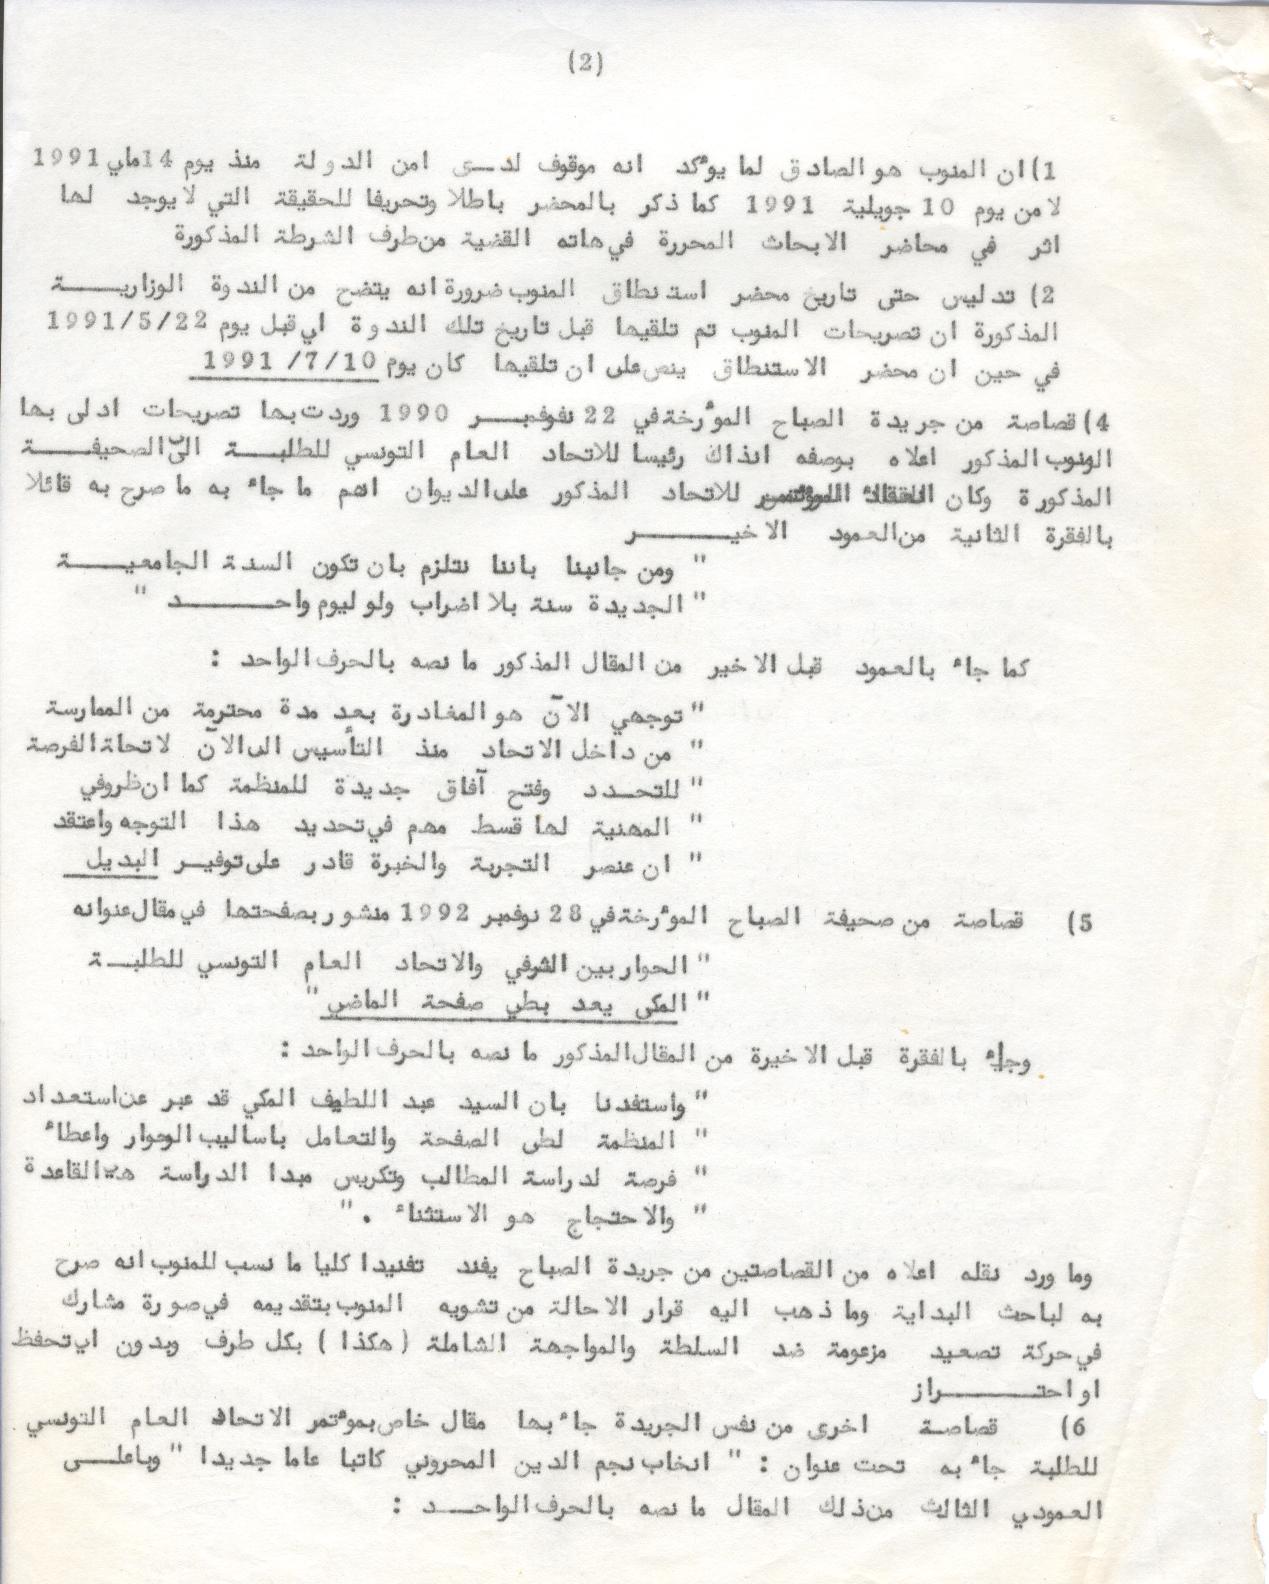 (2)
1) ان المنوب هو الصادق لما يوٴكد انه موقوف لدى امن الدولة منذ يوم 14 ماي 1991
لا من يوم 10 جويلية 1991 كما ذكر بالمحضر باطلا وتحريفا للحقيقة التي لا يوجد لها
اثر في محاضر الابحاث المحررة في هاته القضية من طرف الشرطة المذكورة
2) تدليس حتى تاريخ محضر استنطاق المنوب ضرورة انه يتضح من الندوة الوزاريـــــة
المذكورة ان تصريحات المنوب تم تلقيها قبل تاريخ تلك الندوة اي قبل يوم 1991/5/22
في حين ان محضر الاستنطاق ينص على ان تلقيها كان يوم 1991 /7/10
4) قصاصة من جريدة الصباح الموٴرخة في 22 نوفمبـــر 1990 وردت بها تصريحات ادلى بها
المنوب المذكور اعلاه بوصفه انذاك رئيسا للاتحاد العام التونسي للطلبـــة الى الصحيفـــة
المذكورة وكان للاتحاد المذكور على الديوان اهم ما جاء به ما صرح به قائلا
بالفقرة الثانية من العمود الاخيـــــر
" ومن جانبنا باننا نلتزم بان تكون السنة الجامعيـــــة
" الجديدة سنة بلا اضراب ولو ليوم واحـــــد "
كما جاء بالعمود قبل الاخير من المقال المذكور ما نصه بالحرف الواحد :
" توجهي الآن هو المغادرة بعد مدة محترمة من الممارسة
" من داخل الاتحاد منذ التأسيس الى الآن لاتحاة الفرصة
" للتحـدد وفتح آفاق جديدة للمنظمة كما ان ظروفي
" المهنية لها قسط مهم في تحديد هذا التوجه واعتقد
" ان عنصر التجربة والخبرة قادر على توفيـر البديل
5) قصاصة من صحيفة الصباح الموٴرخة في 28 نوفمبر 1992 منشور بصفحتها في مقال عنوانه
" الحوار بين الشرفي والاتحاد العام التونسي للطلبـــة
" المكي يعد بطي صفحة الماضي "
وجاء بالفقرة قبل الاخيرة من المقال المذكور ما نصه بالحرف الواحد :
" واستفدنا بان السيد عبد اللطيف المكي قد عبر عن استعداد
" المنظمة لطى الصفحة والتعامل باساليب الحوار واعطاء
" فرصة لدراسة المطالب وتكريس مبدا الدراسة هي القاعدة
" والاحتجاج هو الاستثناء . "
وما ورد نقله اعلاه من القصاصتين من جريدة الصباح يفند تفنيدا كليا ما نسب للمنوب انه صرح
به لباحث البداية وما ذهب اليه قرار الاحالة من تشويه المنوب بتقديمه في صورة مشارك
في حركة تصعيد مزعومة ضد السلطة والمواجهة الشاملة ( هكذا ) بكل طرف وبدون اي تحفظ
او احتـــــراز
6) قصاصة اخرى من نفس الجريدة جاء بها مقال خاص بموٴتمر الاتحاد العام التونسي
للطلبة جاء به تحت عنوان : " انخاب نجم الدين المحروني كاتبا عاما جديدا " وباعلـــى
العمودي الثالث من ذلك المقال ما نصه بالحرف الواحـــد :